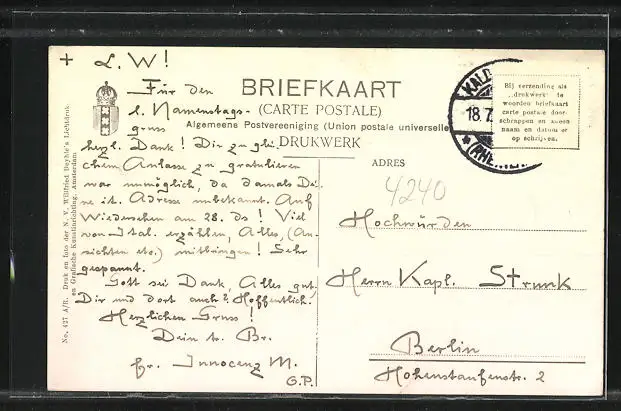 + L. W!
Für den
l. Namenstags-
gruss
herzl. Dank! Dir zu glei-
chem Anlasse zu gratulieren
war unmöglich, da damals Dei-
ne it. Adresse unbekannt. Auf
Wiedersehen am 28. ds! Viel
von Ital. erzählen, Alles, (An-
sichten etc.) mitbringen! Sehr
gespannt.
Gott sei Dank, Alles gut,
Dir und dort auch? Hoffentlich.
Herzlichen Gruss!
Dein tr. Br.
fr. Innocenz M.
O.P.
BRIEFKAART
(CARTE POSTALE)
Algemeene Postvereeniging (Union postale universelle)
DRUKWERK
ADRES
4240
Hochwürden
Herrn Kapl. Strunk
Berlin
Hohenstaufenstr. 2
KALD
18.7
(RHEINL
Bij verzending als
„drukwerk" te
woorden briefkaart
carte postale door-
schrappen en alleen
naam en datum er
op schrijven.
No. 427 A/R. Druk en foto der N. V. Wilfried Deyhle's Lichtdruk
en Grafische Kunstinrichting, Amsterdam